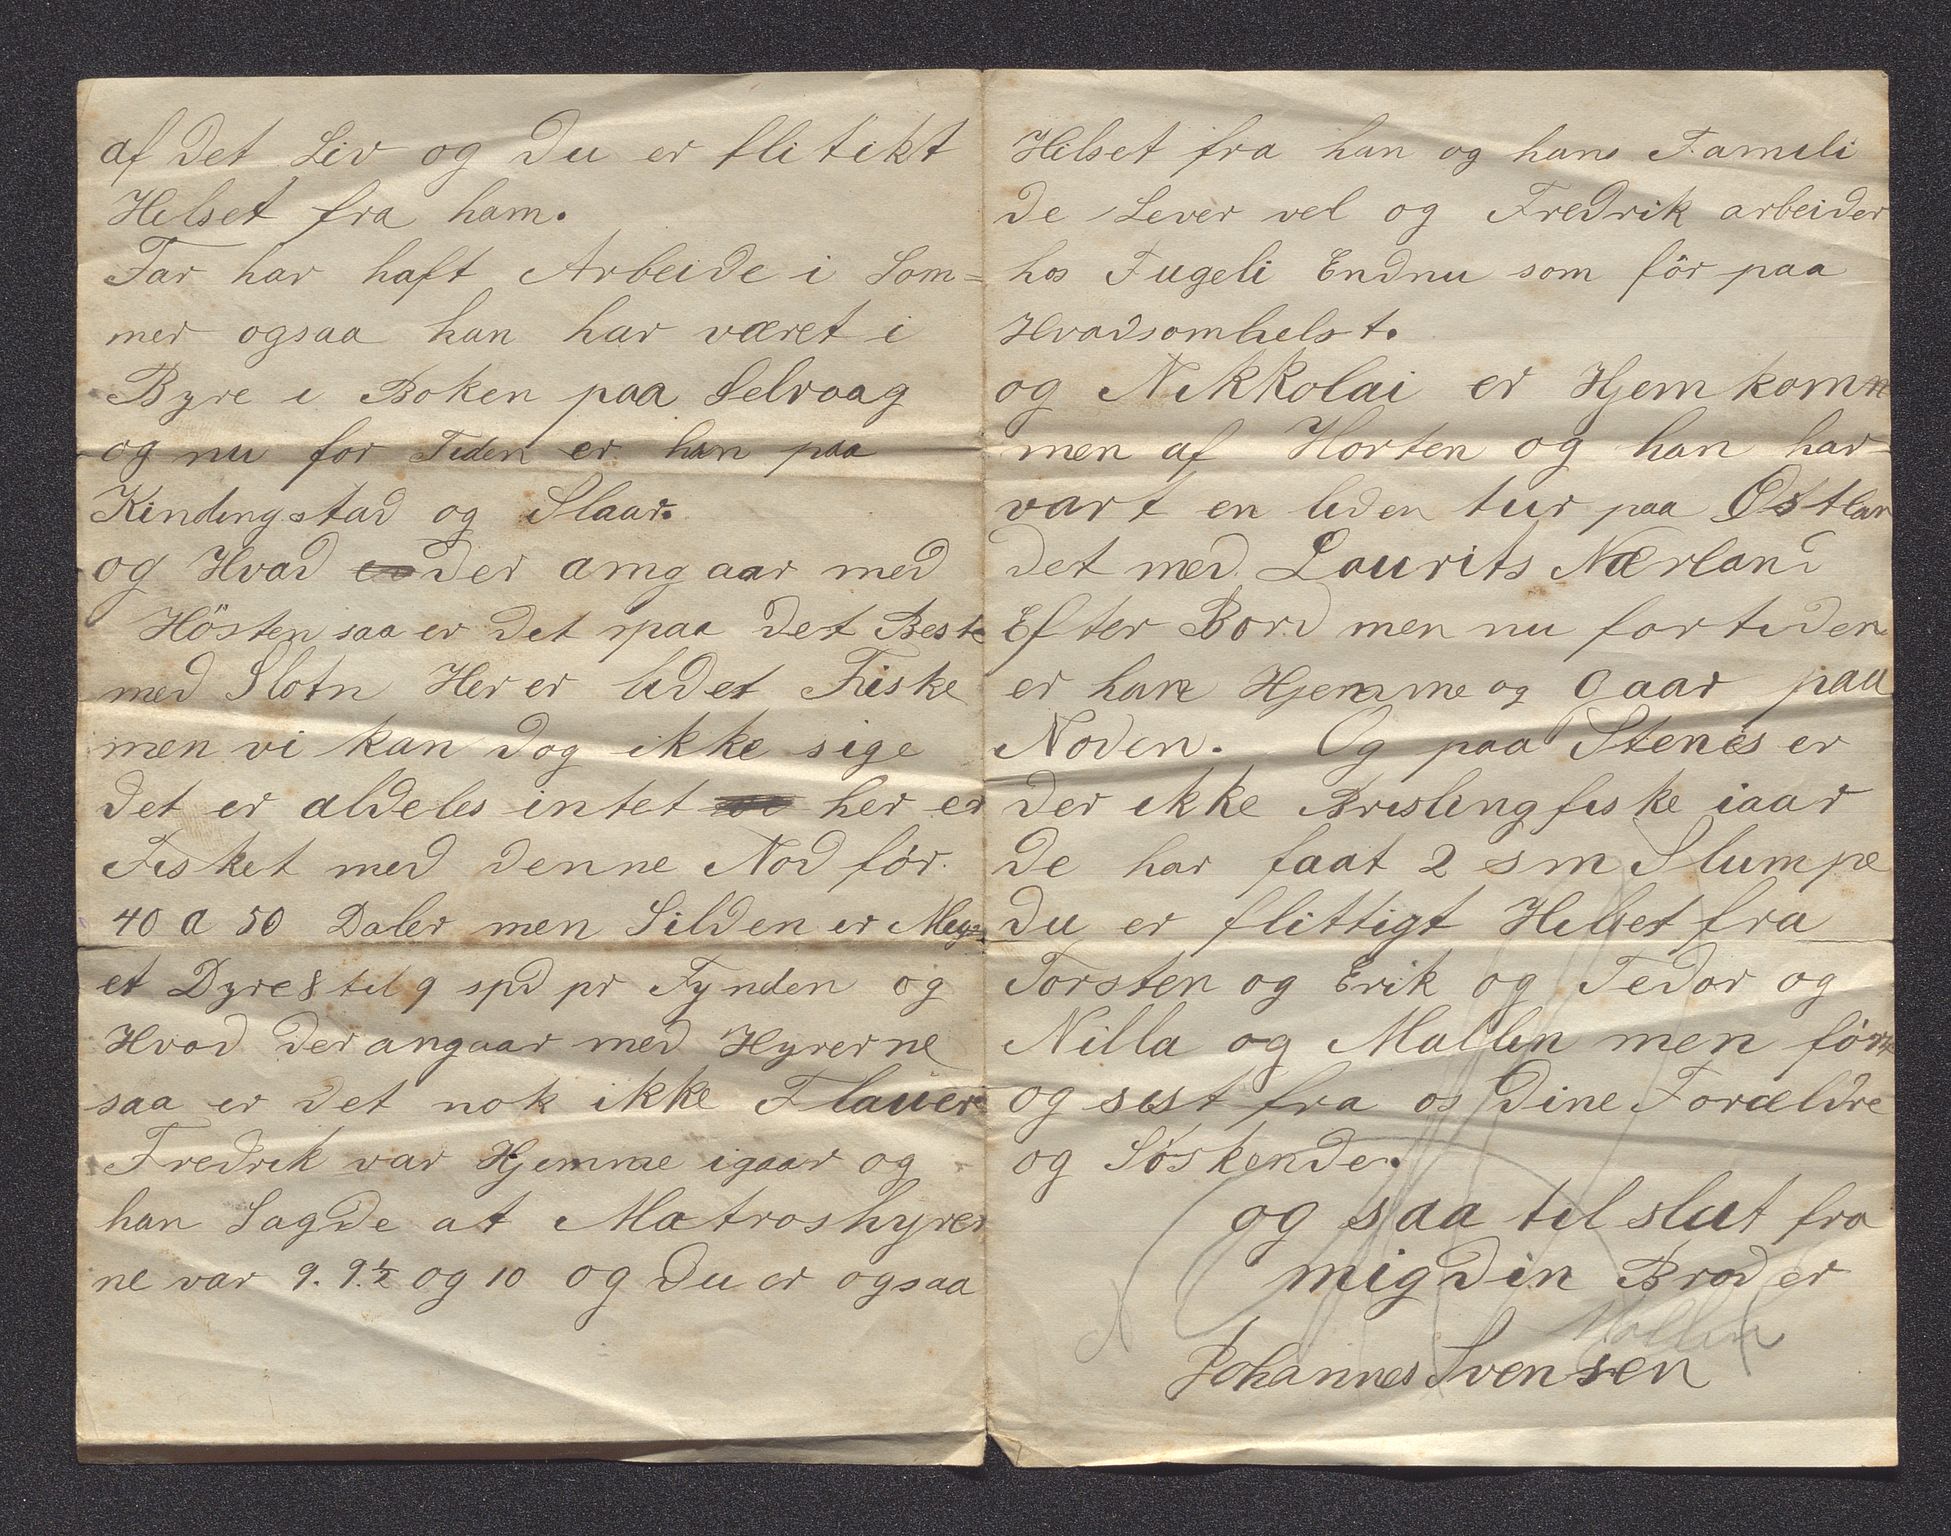 af det Liv og du er flitikt
Hilset fra ham.
Far har haft Arbeide i Som=
mer ogsaa han har været i
Byre i Boken paa Selvaag
og nu for Tiden er han paa
Kindingstad og Slaar.
og Hvad der amgaar med
Hösten saa er det paa det Beste
med Slotn Her er lidet Fiske
men vi kan dog ikke sige
det er aldeles intet her er
Fisket med denne Nod før
40 a 50 Daler men Silden er Mey=
et Dyre 8 til 9 spd pr Tynden og
Hvad der angaar med Hyrerne
saa er det nok ikke Flauer
Fredrik var Hjemme igaar og
han Sagde at Matroshyrer
ne var 9. 9.½ og 10 og Du er ogsaa
Hilset fra han og hans Fameli
de Lever vel og Fredrik arbeider
hos Fugeli Endnu som för paa
Hvadsomhelst.
og Nikkolai er Hjem komm
men af Horten og han har
vart en liden tur paa Østlan
det med Lourits Nærland
Efter Bord men nu fortiden
er han Hjemme og gaar paa
Noden. Og paa Stenes er
der ikke Brislingfiske iaar
de har faat 2 sm Slumpe
du er flittigt Hilset fra
Torsten og Erik og Tedor og
Nilla og Mallin men först
og sist fra os Dine Forældre
og Søskende.
og saa til slut fra
mig din Broder
Mallin
Johannes Svensen